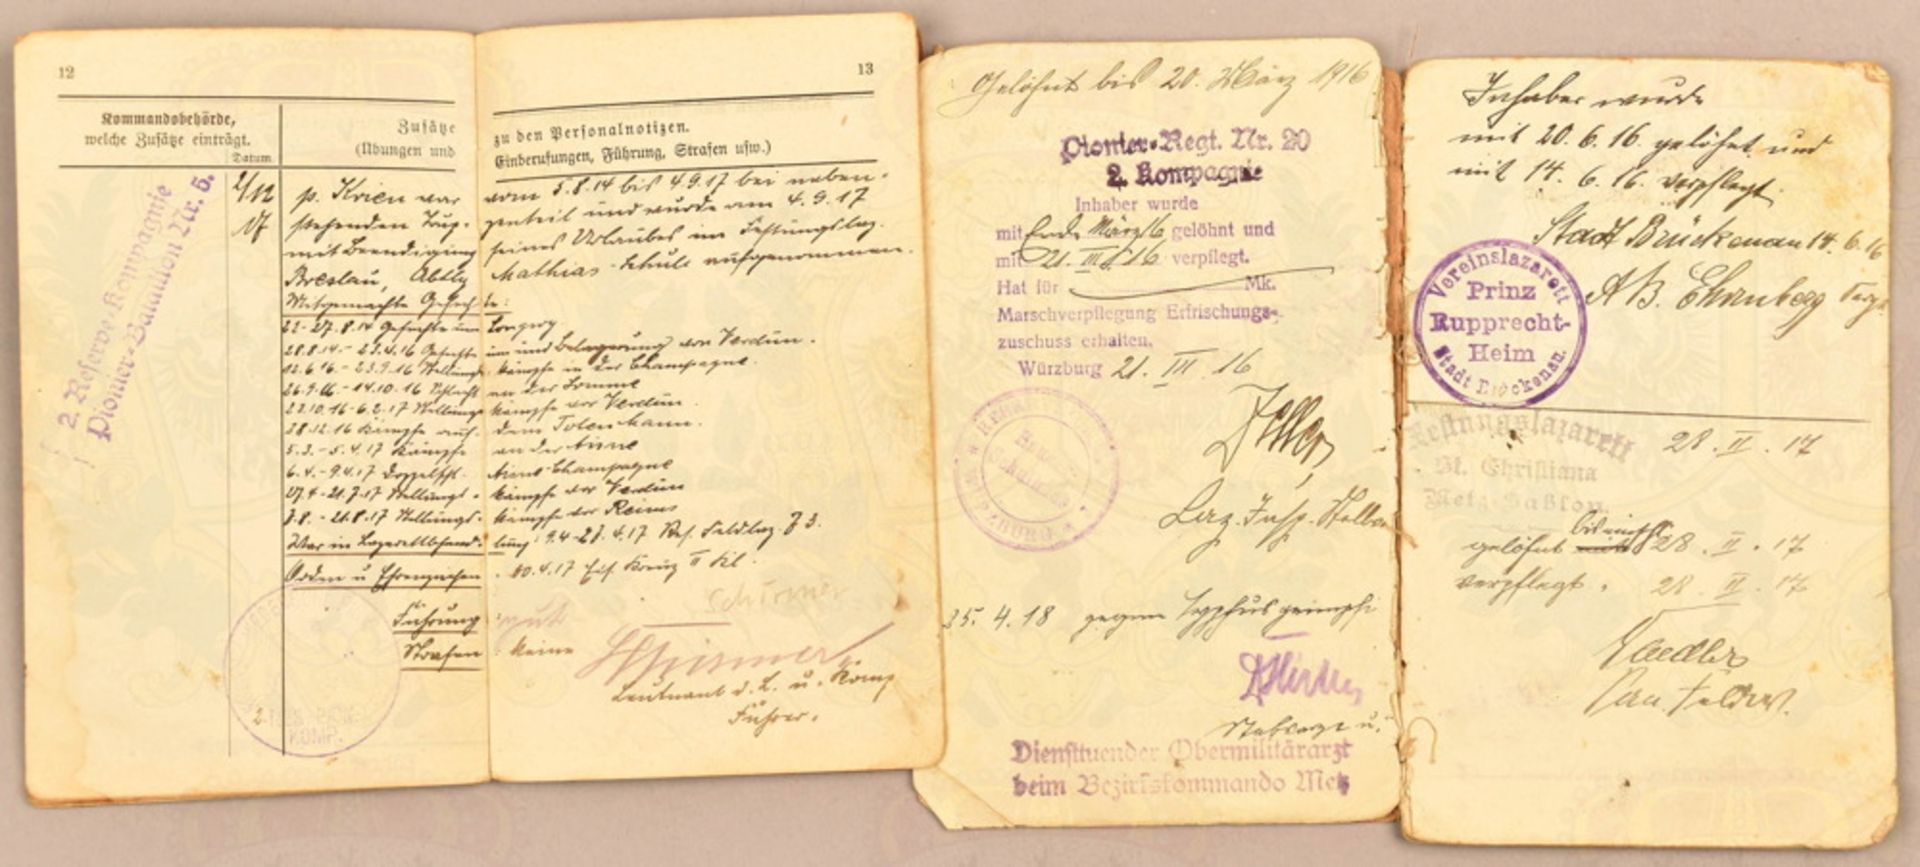 12
13
Kommandobehörde,
welche Zusätze einträgt.
Datum
Zusätze zu den Personalnotizen.
(Übungen und Einberufungen, Führung, Strafen usw.)
2. Reserve-Kompagnie
Pionier-Bataillon Nr. 5.
2/12 p. Krien war vom 5.8.14 bis 4.9.17 bei neben-
17 stehenden Trup- penteil und wurde am 4.9.17
mit Beendigung seines Urlaubes im Festungslaz.
Breslau, Abtlg Mathias-Schule aufgenommen.
Mitgemachte Gefechte:
22.-27.8.14 Gefechte um Longwy
28.8.14.-23.4.16 Gefechte um und Belagerung von Verdun.
12.6.16-23.9.16 Stellungs- kämpfe in der Champagne.
26.9.16-14.10.16 Schlacht an der Somme
22.10.16-6.2.17 Stellungs- kämpfe vor Verdun.
28.12.16 Kämpfe auf dem Toten Mann.
5.3.-5.4.17 Kämpfe an der Aisne
6.4.-9.4.17 Doppelschl. Aisne Champagne
27.4-21.7.17 Stellungs- kämpfe vor Verdun
7.8.-21.8.17 Stellungs- kämpfe vor Reims
War in Lazarettbehand- lung: 9.4-27.4.17 Res. Feldlaz. 73.
Orden u Ehrenzeichen: 10.4.17 Eis. Kreuz II Kl.
Schirmer
Führung: gut
Strafen: keine
Schirmer
Leutnant d. L. u. Komp
Führer.
KOMP.
Gelöhnt bis 20. März 1916
Pionier-Regt. Nr. 20
2. Kompagnie
Inhaber wurde
mit Ende März 16 gelöhnt und
mit 21. III 16 verpflegt.
Hat für Mk.
Marschverpflegung Erfrischungs-
zuschuss erhalten.
Würzburg 21. III. 16
WÜRZBURG
Laz. Insp. Stellv.
25. 4. 18 gegen Typhus geimpft
Stabsarzt u.
Diensttuender Obermilitärarzt
beim Bezirkskommando Metz
Inhaber wurde
mit 20. 6. 16. gelöhnt und
mit 14. 6. 16. verpflegt.
Stadt Brückenau 14. 6. 16
A B. Ehrenberg
Vereinslazarett
Prinz
Rupprecht-
Heim
Stadt Brückenau.
Festungslazarett
St. Christiana
Metz-Sablon.
28. II. 17
bis einschl.
gelöhnt mit 28. II. 17
verpflegt " 28. II. 17